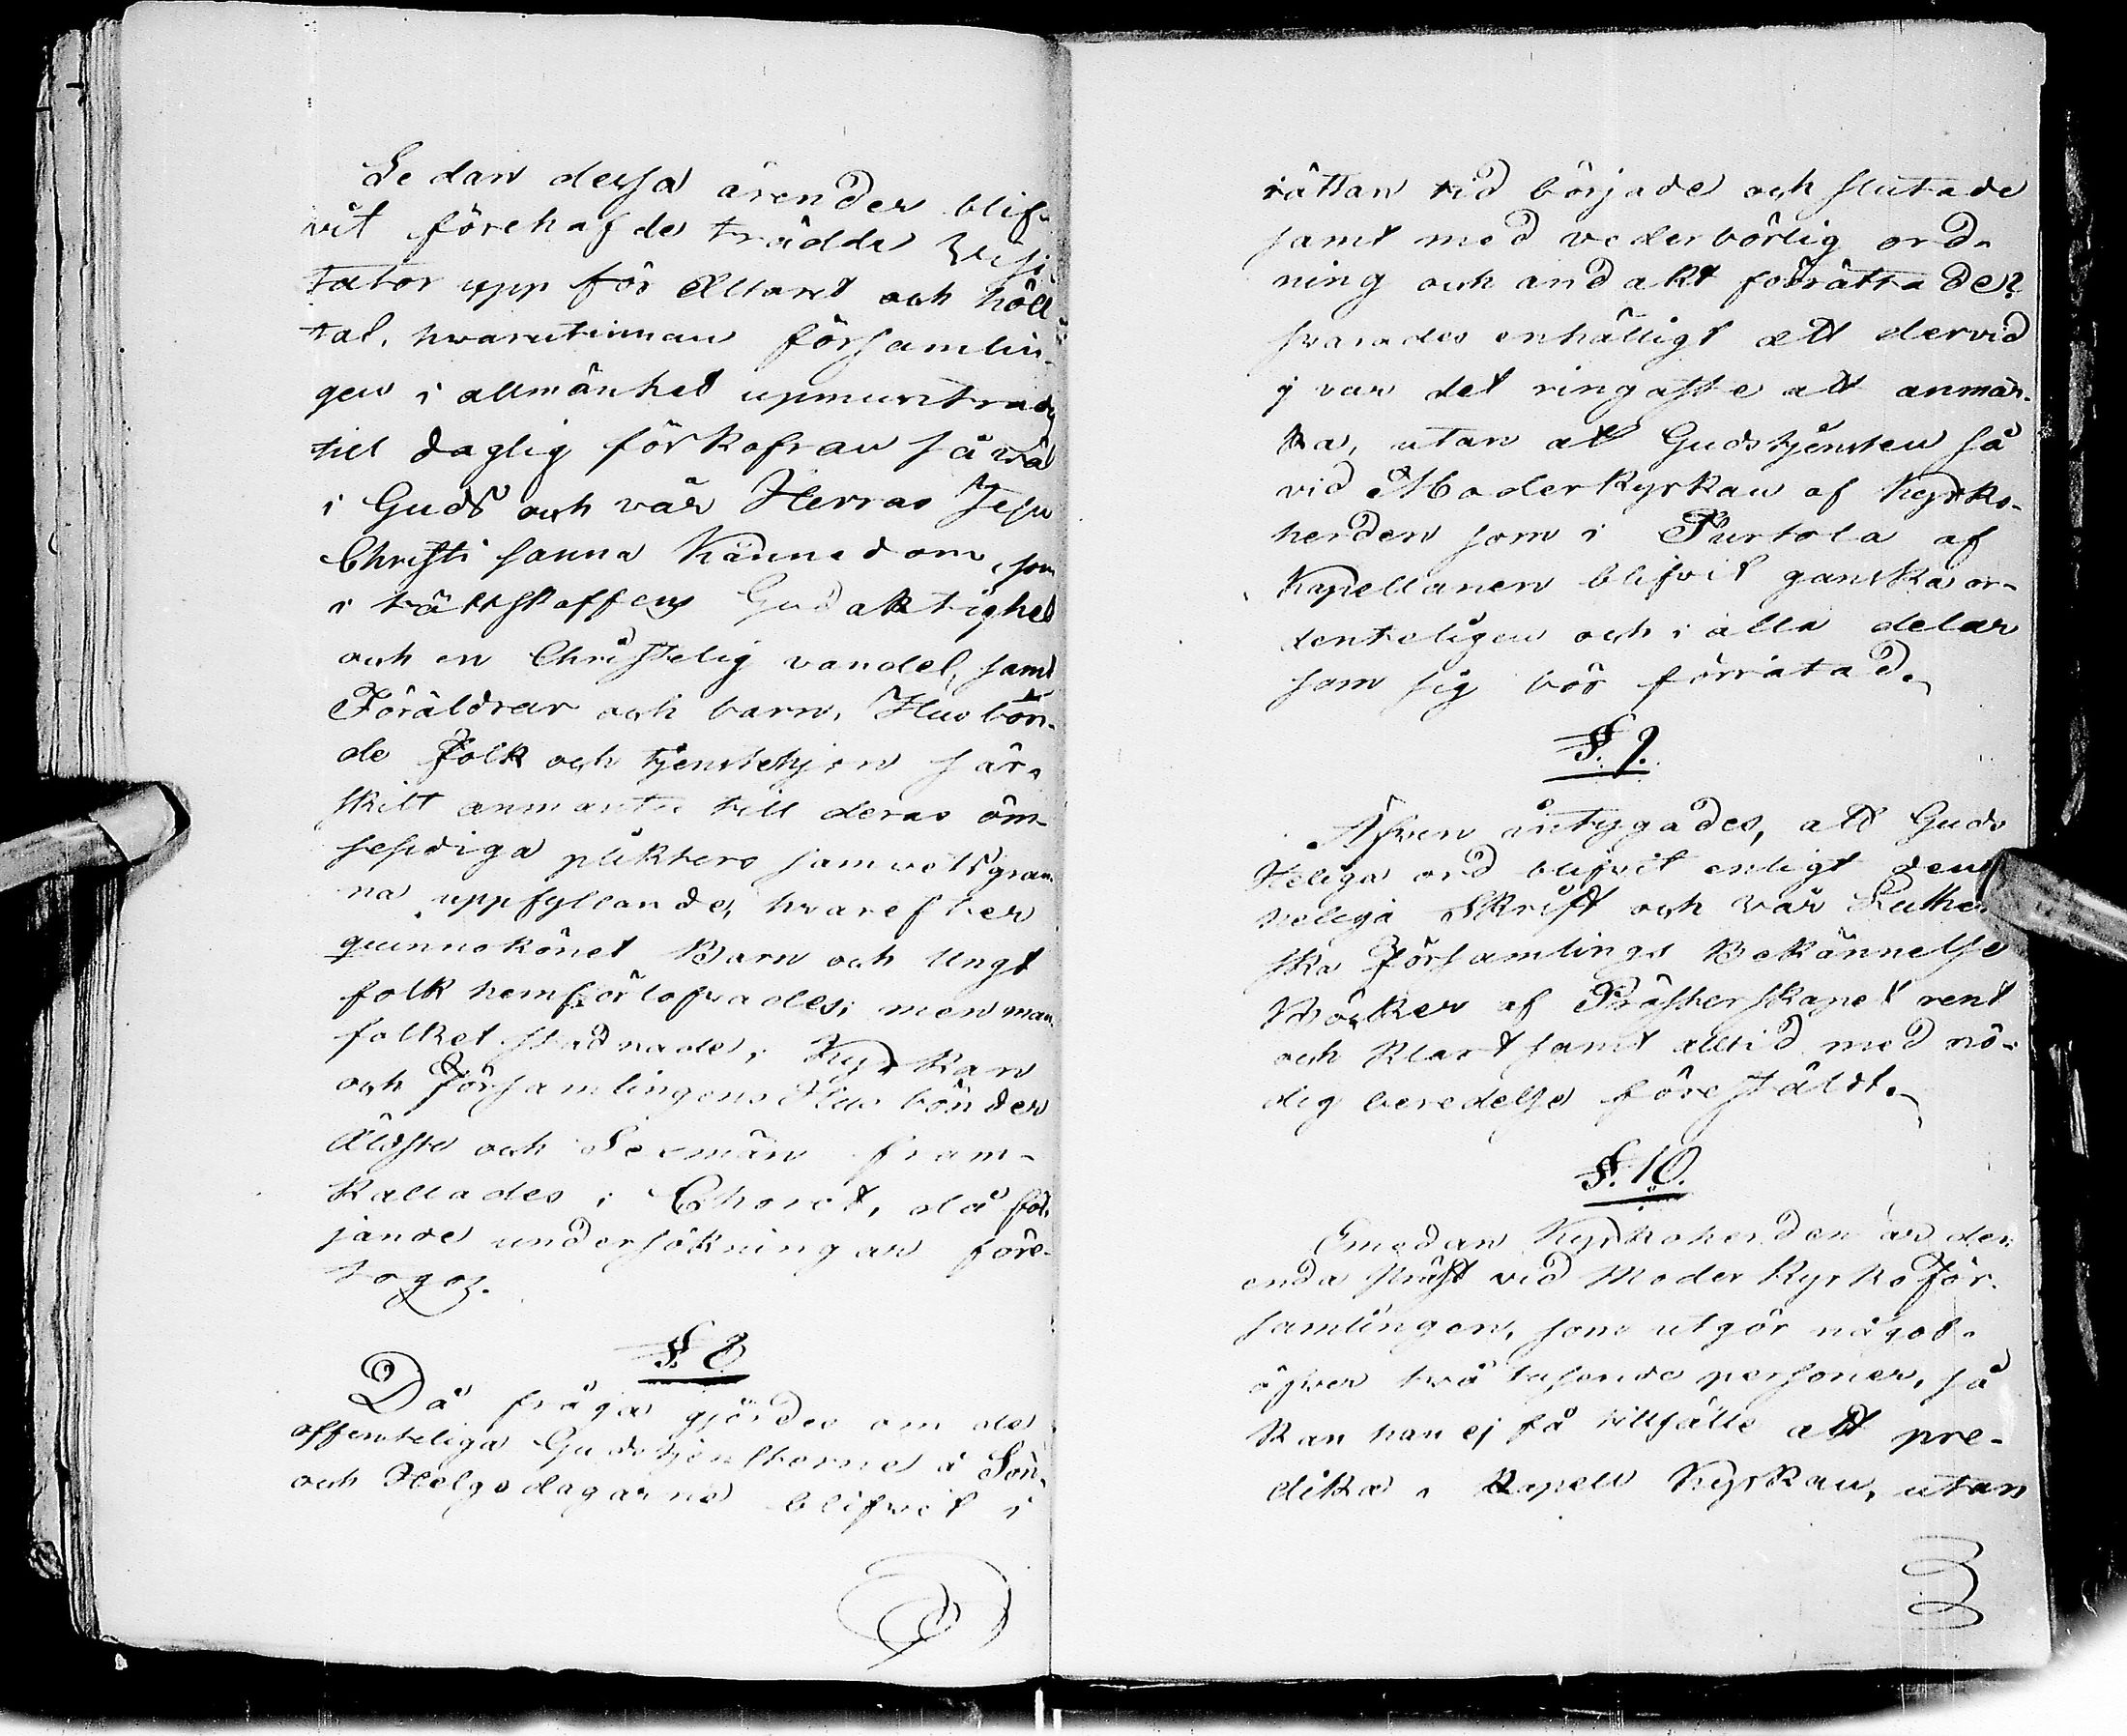 Sedan dessa ärender blif-
vit förehafde trädde Visi-
tator upp för Altaret och höll
tal, hvarutinnan församlin-
gen i allmänhet upmuntrades
till daglig förkofran så väl
i Guds och vår Herras Jesu
Christi sanna Kännedom, som
i rättskaffens Gudaktighet
och en Christelig vandel, samt
Föräldrar och barn, Husbön-
de folk och tjenstehjon sär-
skilt anmante till deras öm-
sesidiga plikters samvetsgran-
na uppfyllande, hvarefter
quinnokönet Barn och Ungt
folk hemförlofvades; men man-
folket stadnade i Kyrkan
och Församlingens Husbönder
Äldste och Sexmän fram-
kallades i Choret, då föl-
jande undersökningar före-
togos.
§. 8
Då fråga gjordes om de
offenteliga Gudstjensterne å Sön-
och Helgedagarne blifvit i
rättan tid började och slutade
samt med vederbörlig ord-
ning och andakt förrättade?
svarades enhälligt att dervid
ej var det ringaste att anmär-
ka, utan att Gudstjensten så
vid Moderkyrkan af Kyrko-
herden som i Purtola af
Kapellanen blifvit ganska or-
denteligen och i alla delar
som sig bör förrätad.
§. 9.
Äfven intygades, att Guds
Heliga ord blifvit enligt den
heliga Skrift och vår Luther
ska Församlings Bekännelse
Böcker af Prästerskapet rent
och klart samt alltid med nö-
dig beredelse föreställt.
§. 10.
Emedan Kyrkoherden är den
enda Präst vid Moder Kyrko För-
samlingen, som utgör något
öfver två tusende personer, så
kan han ej få tillfälle att pre-
dika i Kapell Kyrkan, utan